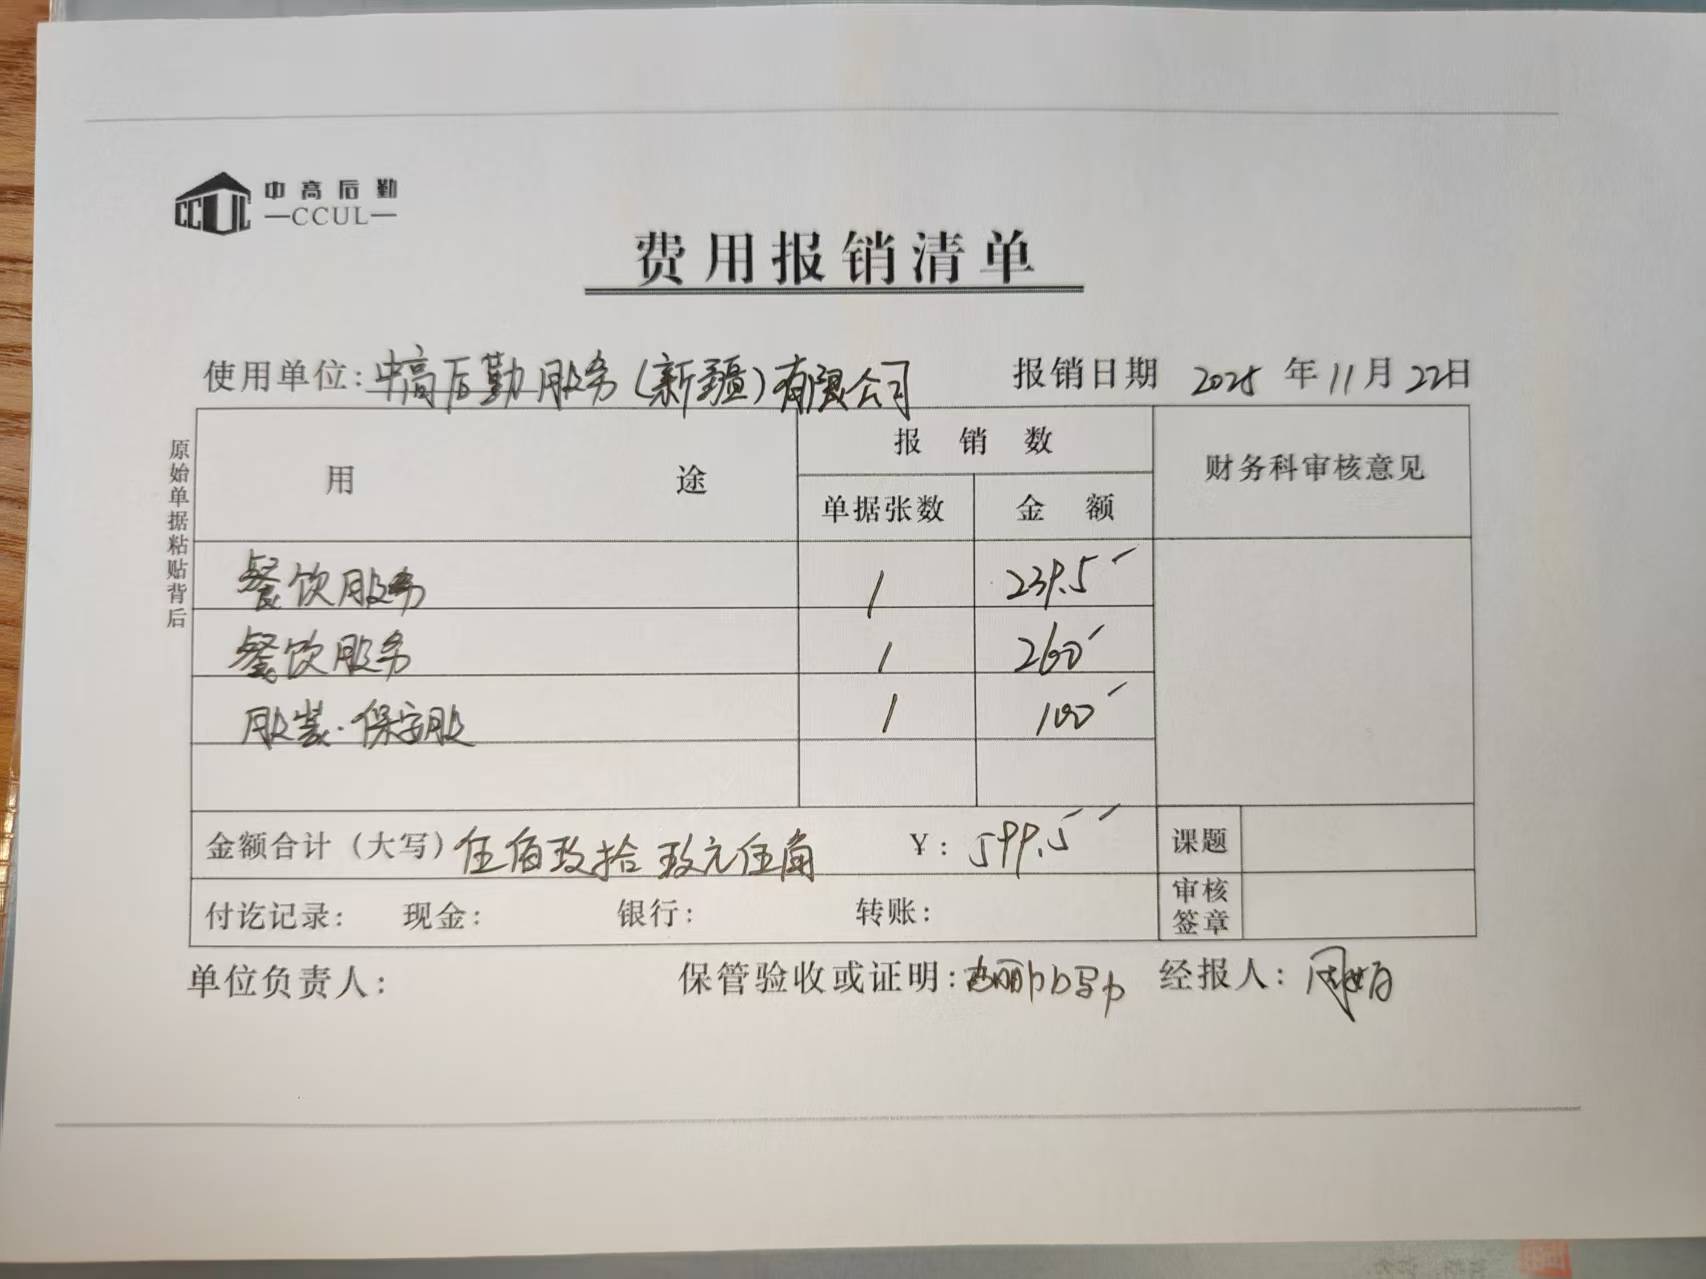 中高后勤
CCUL
费用报销清单
使用单位:中高后勤服务(新疆)有限公司 报销日期 2025 年 11 月 22日
原始单据粘贴背后
用 途 报销数 财务科审核意见
单据张数 金额
餐饮服务 1 239.5
餐饮服务 1 260
服装·保安服 1 100
金额合计(大写)伍佰玖拾玖元伍角 ¥: 599.5 课题
付讫记录: 现金: 银行: 转账: 审核签章
单位负责人: 保管验收或证明: 经报人: